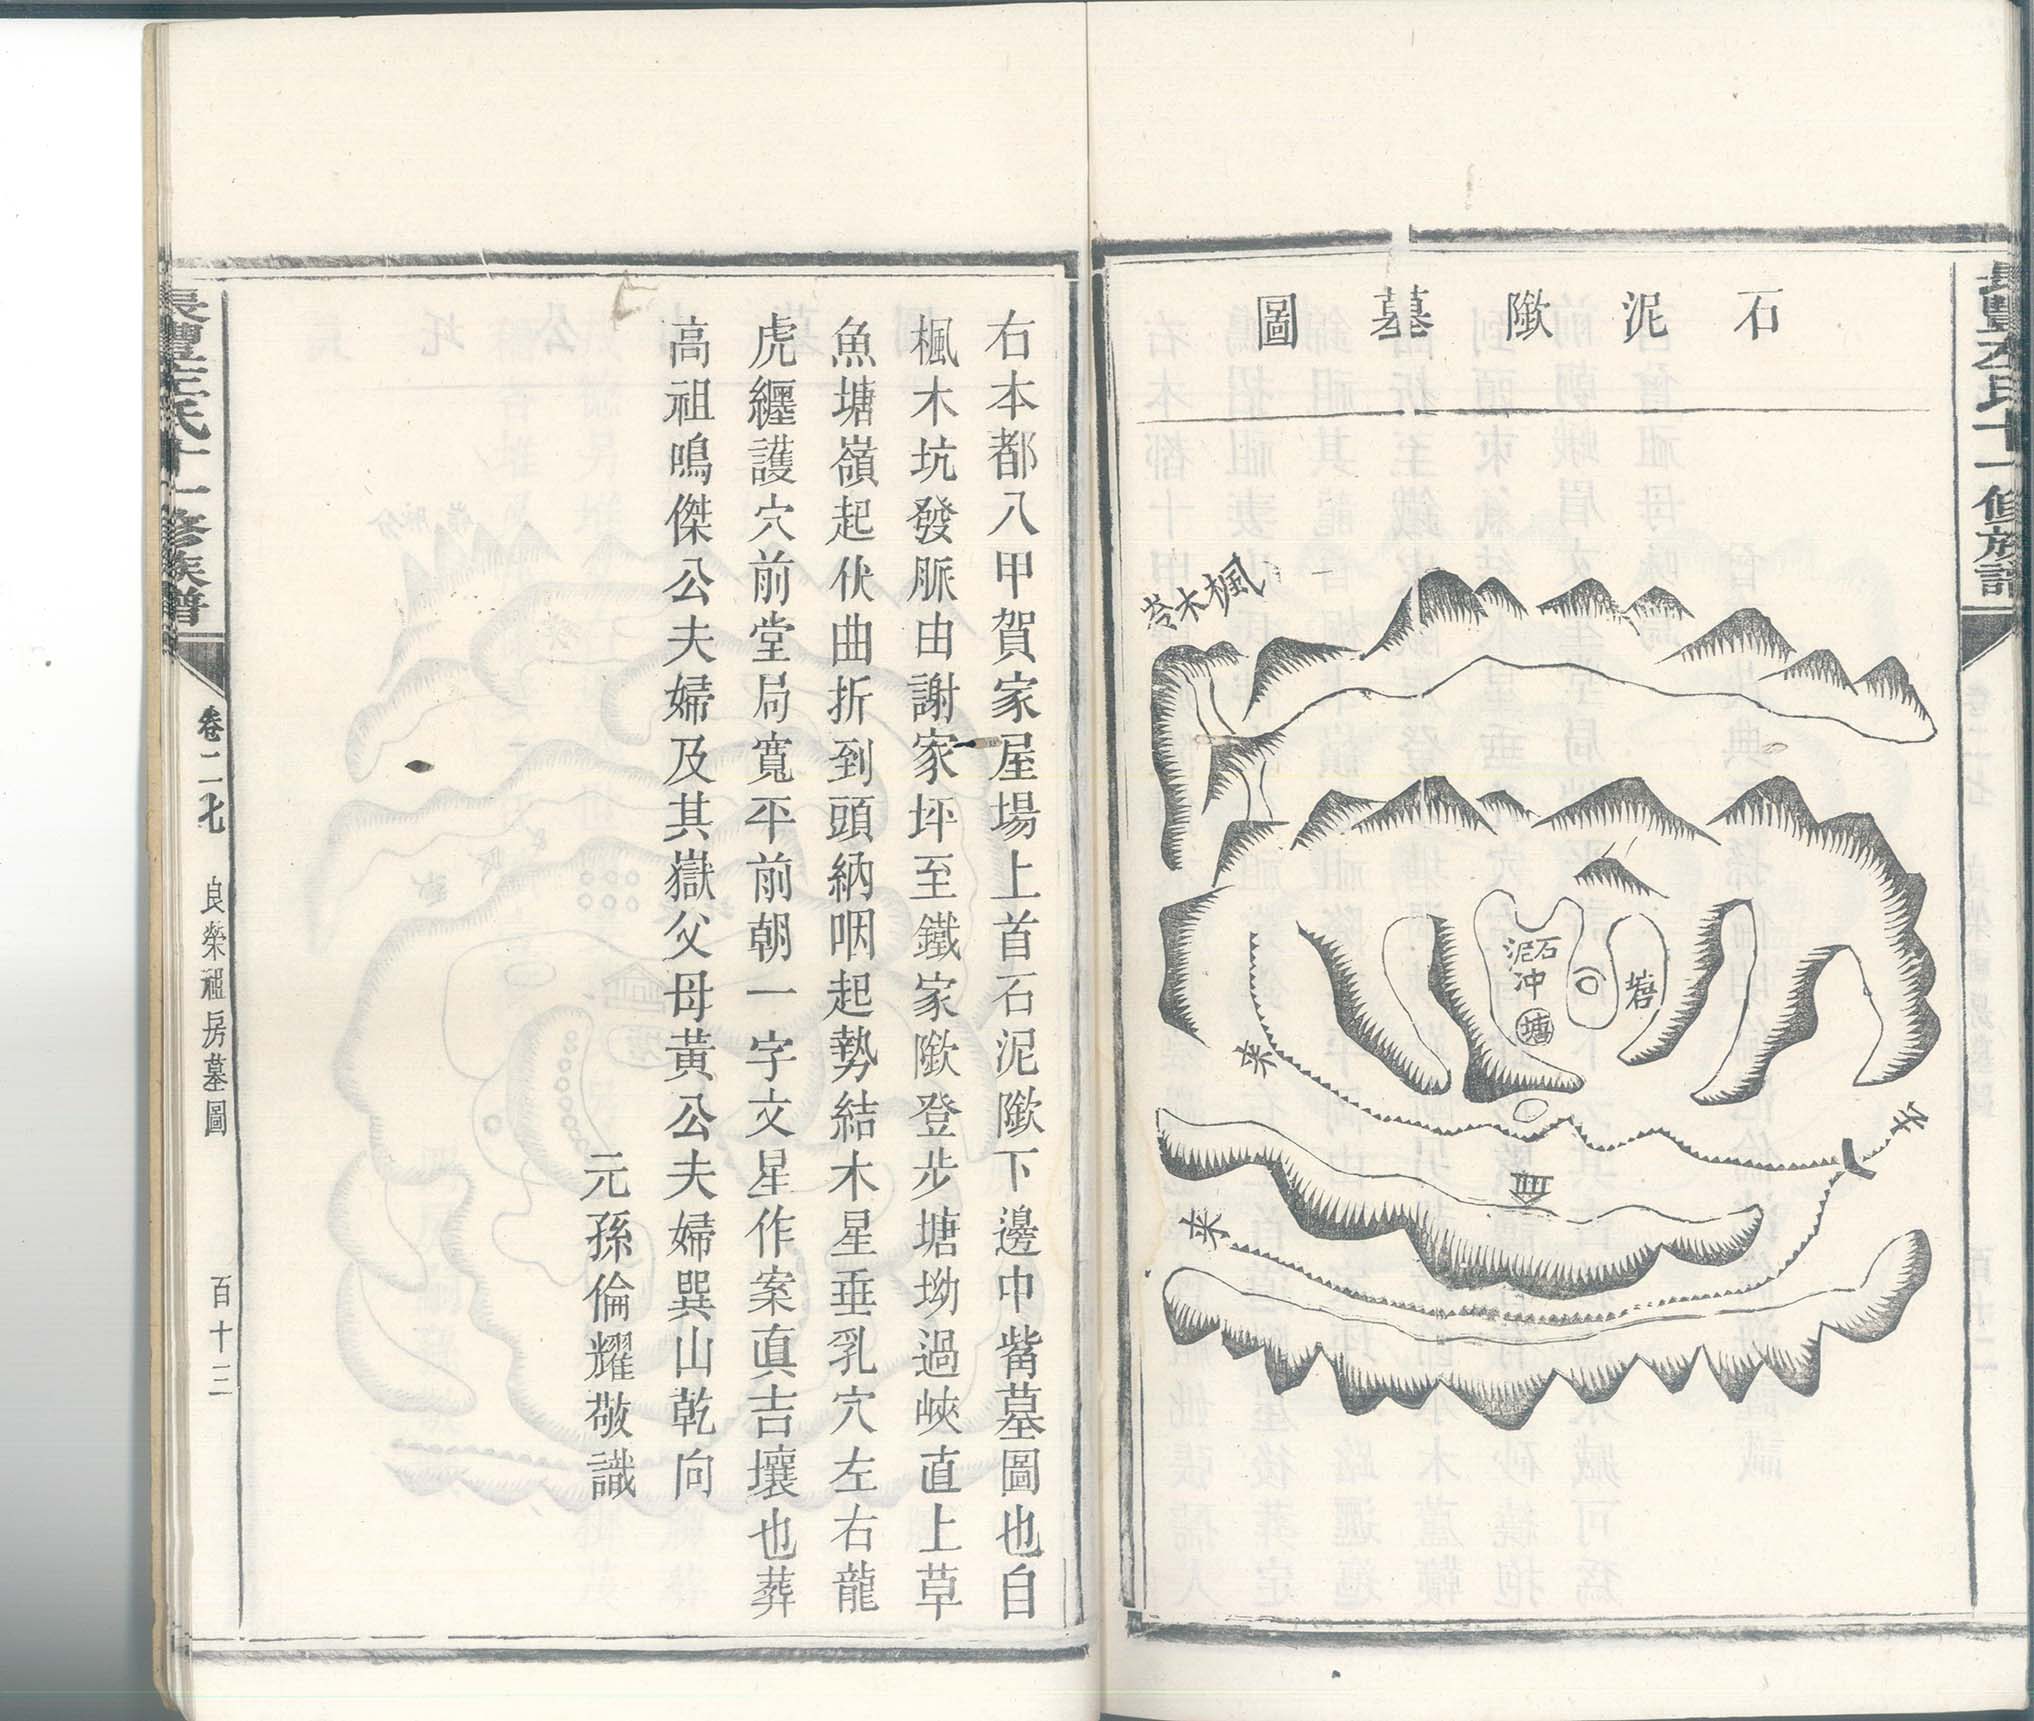 石泥㘓墓圖
楓木岺
石泥冲
塘
塘
来
来
去
右本都八甲賀家屋場上首石泥㘓下邊巾觜墓圖也自
楓木坑發脈由謝家坪至鐵家㘓登步塘坳過峽直上草
魚塘嶺起伏曲折到頭納咽起勢結木星垂乳穴左右龍
虎纏護穴前堂局寬平前朝一字文星作案眞吉壤也葬
高祖鳴傑公夫婦及其嶽父母黃公夫婦巽山乾向
元孫倫耀敬識
氏十一修族譜
卷二
良榮祖房墓圖
百十三